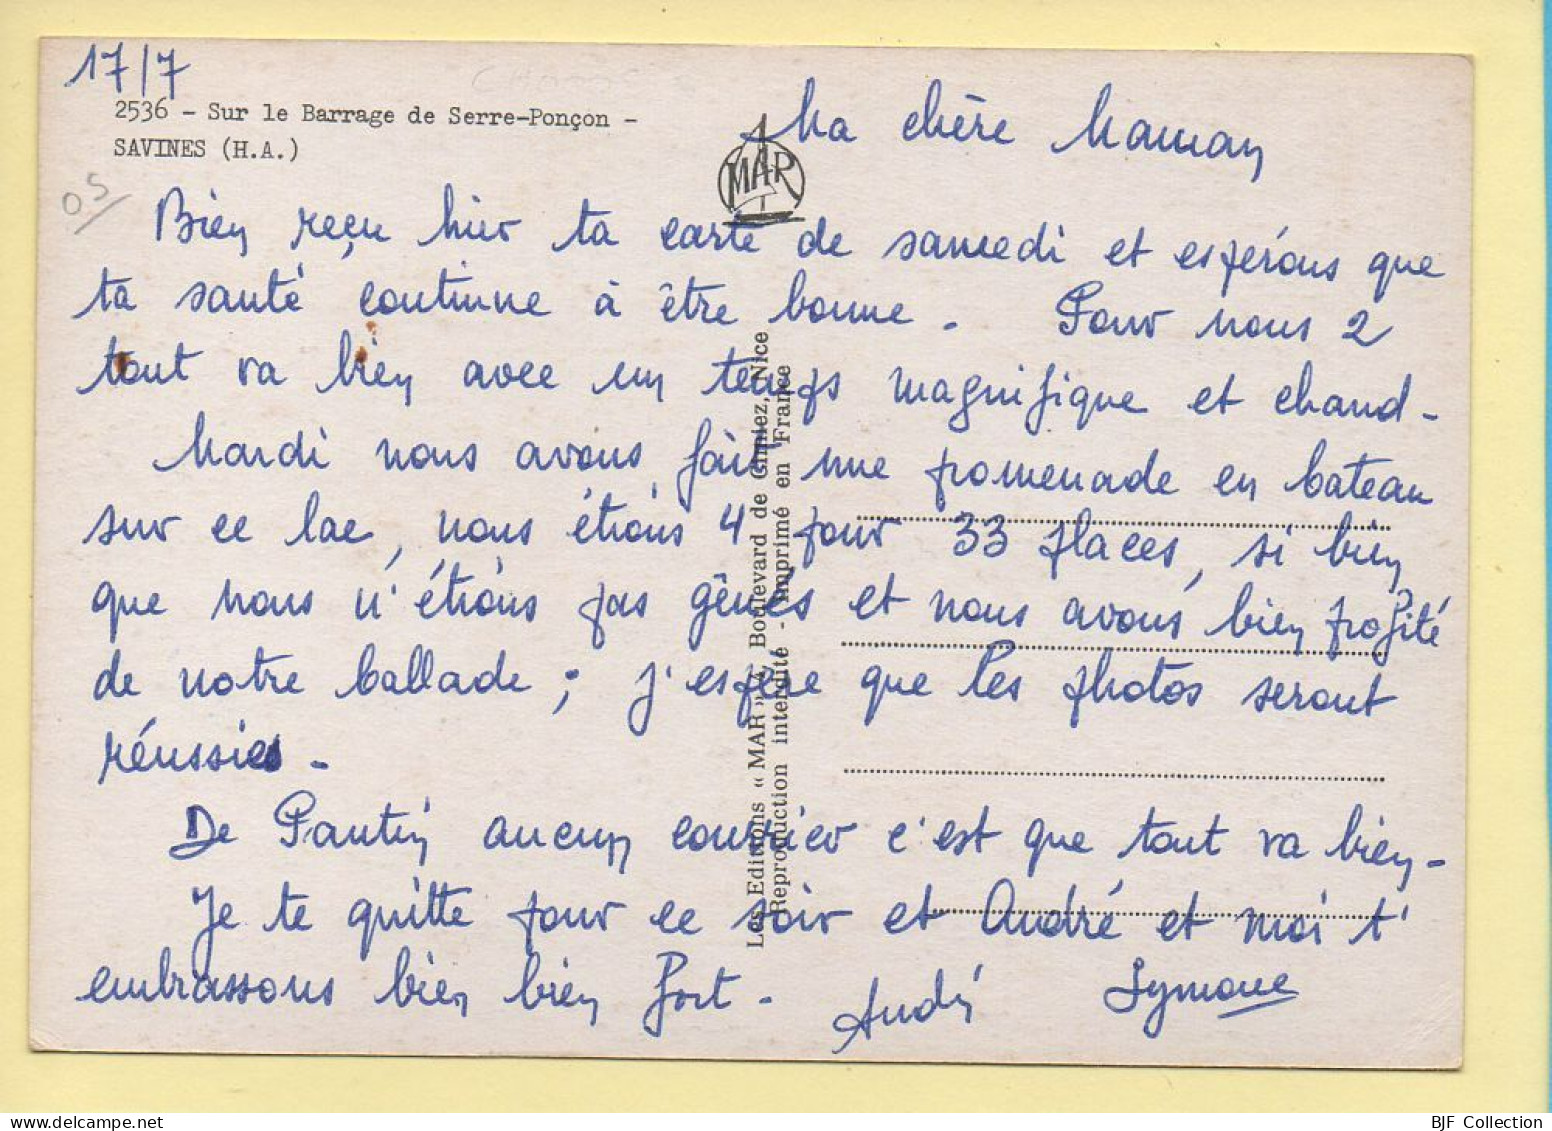 17/7
2536 – Sur le Barrage de Serre-Ponçon –
SAVINES (H.A.)
05
MAR
Ma chère Maman
Bien reçu hier ta carte de samedi et espérons que
ta santé continue à être bonne. Pour nous 2
tout va bien avec un temps magnifique et chaud.
Mardi nous avons fait une promenade en bateau
sur ce lac, nous étions 4 pour 33 places, si bien
que nous n'étions pas gênés et nous avons bien profité
de notre ballade ; j'espère que les photos seront
réussies.
De Pantin aucun courrier c'est que tout va bien.
Je te quitte pour ce soir et André et moi t'
embrassons bien bien fort.
André Symone
Les Editions « MAR » Boulevard de Cimiez, Nice
Reproduction interdite - Imprimé en France
BJF Collection